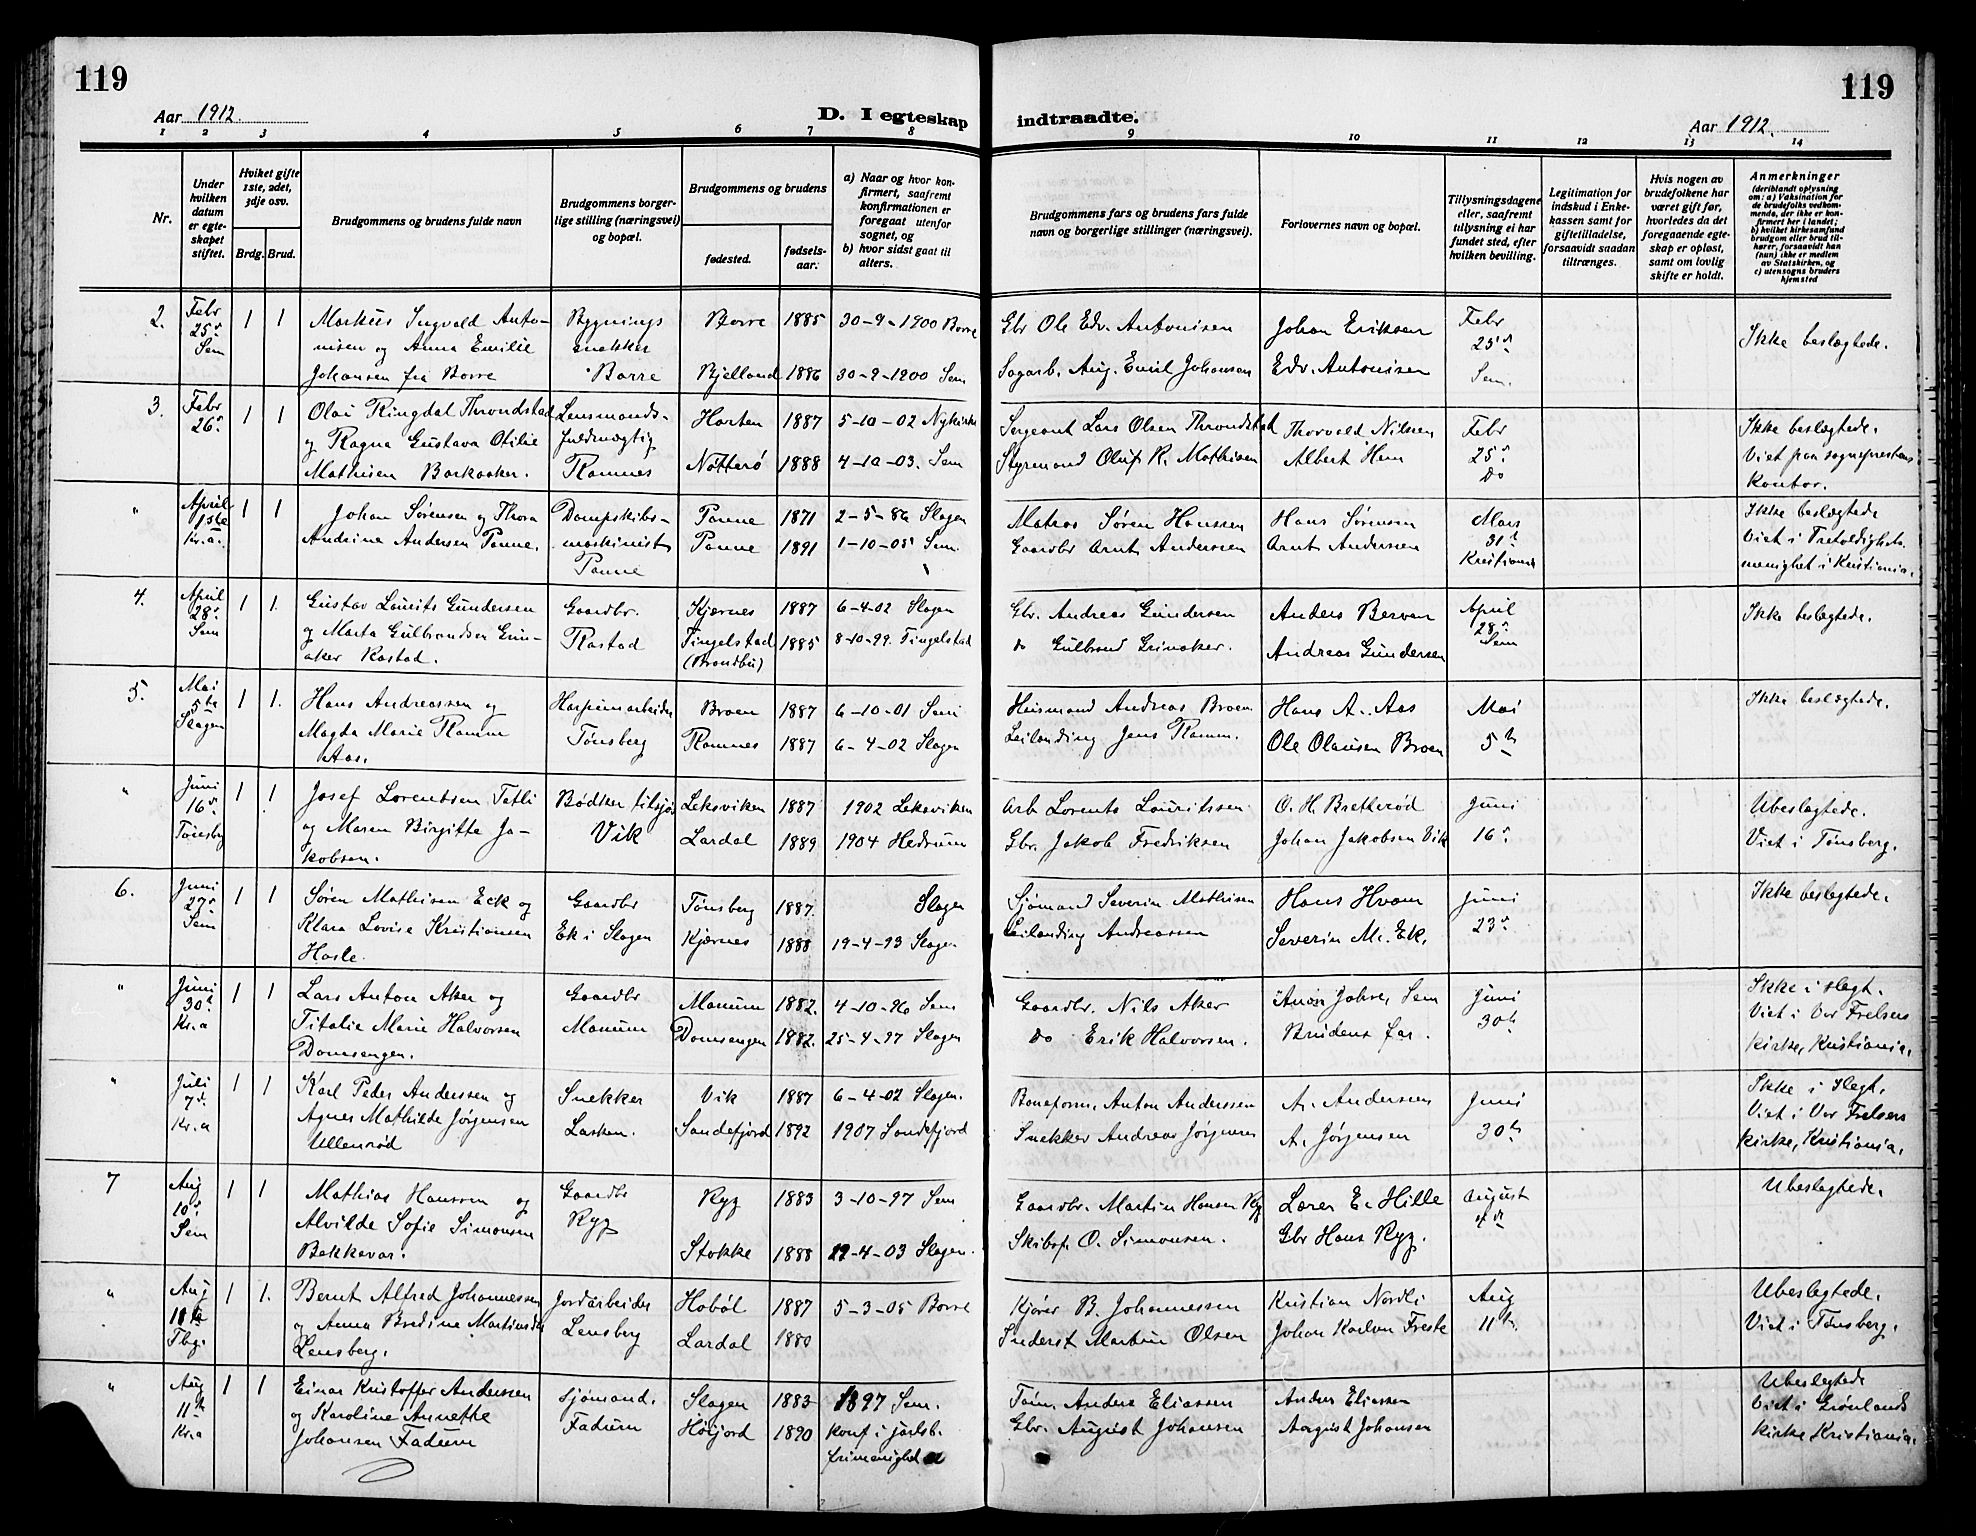 119
119
Aar 1912.
D. I egteskap
indtraadte.
Aar 1912.
1 2 3 4 5 6 7 8 9 10 11 12 13 14
Nr.
Under hvilken datum er egteskapet stiftet.
Hviket gifte 1ste, 2det, 3dje osv.
Brdg. Brud.
Brudgommens og brudens fulde navn
Brudgommens borgerlige stilling (næringsvei) og bopæl.
Brudgommens og brudens
fødested.
fødselsaar.
a) Naar og hvor konfirmert, saafremt konfirmationen er foregaat utenfor sognet, og
b) hvor sidst gaat til alters.
Brudgommens fars og brudens fars fulde navn og borgerlige stillinger (næringsvei).
Forlovernes navn og bopæl.
Tillysningsdagene eller, saafremt tillysning ei har fundet sted, efter hvilken bevilling.
Legitimation for indskud i Enkekassen samt for giftetilladelse, forsaavidt saadan tiltrænges.
Hvis nogen av brudefolkene har været gift før, hvorledes da det foregaaende egteskap er opløst, samt om lovlig skifte er holdt.
Anmerkninger
(deriblandt oplysning om: a) Vaksination for de brudefolks vedkommende, der ikke er konfirmert her i landet; b) hvilket kirkesamfund brudgom eller brud tilhører, forsaavidt han (hun) ikke er medlem av Statskirken, og c) utensogns bruders hjemsted
2. Febr 25de Sem 1 1 Markus Ingvald Antonisen og Anna Emilie Johansen fra Borre
Bygnings snekker Borre
Borre 1885 30-9-1900 Borre
Bjelland 1886 30-9-1900 Sem
Gbr Ole Edv. Antonisen
Sagarb. Aug. Emil Johansen
Johan Eriksen
Edv. Antonisen
Febr 25de Sem.
Ikke beslægtede.
3. Febr 26de 1 1 Olai Ringdal Throndstad og Ragna Gustava Otilie Mathisen Barkaaker.
Lensmandsfuldmægtig Ramnes
Horten 1887 5-10-02 Nykirke
Nøtterø 1888 4-10-03. Sem
Sergeant Lars Olsen Throndstad
Styrmand Oluf R. Mathisen
Thorvald Nilsen
Albert Hem
Febr 25de Do
Ikke beslegtede.
Viet paa sogneprestens kontor.
" April 1ste Kr.a. 1 1 Johan Sørensen og Thora Andrine Andersen Ponne.
Dampskibsmaskinist Ponne
Ponne 1871 2-5-86 Slagen
Ponne 1891 1-10-05 Sem.
Matros Søren Hanssen
Gaardbr Arnt Anderssen
Hans Sørensen
Arnt Anderssen
Mars 31te Kristiania
Ikke beslegtede
Viet i Trefoldigheds menighet i Kristiania.
4. April 28de Sem 1 1. Gustav Laurits Gundersen og Marta Gulbrandsen Grinaker Rastad.
Gaardbr. Rastad
Kjærnes 1887 6-4-02 Slagen
Tingelstad (Brandbu) 1885 8-10-99. Tingelstad
Gbr. Andreas Gundersen
Do Gulbrand Grinaker.
Anders Berven
Andreas Gundersen
April 28de Sem
Ikke beslægtede.
5. Mai 5te Slagen 1 1. Hans Andreassen og Magda Marie Ramm Aas.
Harpunarbeider Tønsberg
Broen 1887 6-10-01 Sem
Ramnes 1887 6-4-02 Slagen
Heismand Andreas Broen
Leilending Jens Ramm.
Hans A. Aas
Ole Olausen Broen
Mai 5te
Ikke beslægtede.
" Juni 16de Tønsbg 1 1 Josef Lorentsen Tetli og Maren Birgitte Jakobsen.
Bødker tilsjøs Vik
Leksviken 1887 1902 Leksviken
Lardal 1889 1904 Hedrum
Arb Lorents Lauritssen
Gbr. Jakob Fredriksen
O. H. Bretterød
Johan Jakobsen Vik
Juni 16de
Ubeslegtede.
Viet i Tønsberg.
6. Juni 27de Sem 1 1 Søren Mathisen Eck og Klara Lovise Kristiansen Hasle.
Gaardbr Ek i Slagen
Tønsberg 1887. Slagen
Kjærnes 1888 19-4-93 Slagen
Sjømand Severin Mathisen
Leilending Andreassen
Hans Hvam
Severin M. Ek.
Juni 23de
Ikke beslegtede.
" Juni 30te Kr.a 1 1 Lars Anton Aker og Titalie Marie Halvorsen Domsengen.
Gaardbr Manum
Manum 1882. 4-10-96 Sem
Domsengen 1882. 25-4-97 Slagen
Gaardbr. Nils Aker
Do Erik Halvorsen.
Johs. Sem
Brudens far.
Juni 30te
Ikke i slegt.
Viet i Vor Frelsers kirke, Kristiania.
" Juli 7de Kr.a 1 1 Karl Peder Anderssen og Agnes Mathilde Jørgensen Ullenrød
Snekker Lasken.
Vik 1887 6-4-02 Slagen.
Sandefjord 1892 1907 Sandefjord
Baneform. Anton Anderssen
Snekker Andreas Jørgensen
A. Andersen
A. Jørgensen
Juni 30te
Ikke i slegt.
Viet i Vor Frelsers kirke, Kristiania.
7 Aug 10de Sem 1 1 Mathias Hanssen og Alvilde Sofie Simonsen Bekkevar.
Gaardbr Ryg
Ryg 1883 3-10-97 Sem
Stokke 1888 12-4-03 Slagen.
Gaardbr. Martin Hansen Ryg
Skibsf. O. Simonsen.
Lærer E. Hille
Gbr Hans Ryg.
August 4de
Ubeslegtede.
" Aug 11te Tbg. 1 1. Bernt Alfred Johannessen og Anna Bredine Martinsdtr Lensberg.
Jordarbeider Lensberg
Hobøl 1887 5-3-05 Borre
Lardal 1880
Kjører B. Johannessen
Inderst Martin Olsen
Kristian Nordli
Johan Karlsen Freste
Aug 11te.
Ubeslegtede.
Viet i Tønsberg.
" Aug 11te Kr.a 1 1 Einar Kristoffer Anderssen og Karoline Annette Johansen Fadum
Sjømand. Fadum
Slagen 1883 1897 Sem.
Høijord 1890 Konf i Jarlsb. frimenighed
Tøm. Anders Eliassen
Gbr. August Johansen
Anders Eliassen
August Johansen
Ubeslegtede
Viet i Grønlands kirke Kristiania.